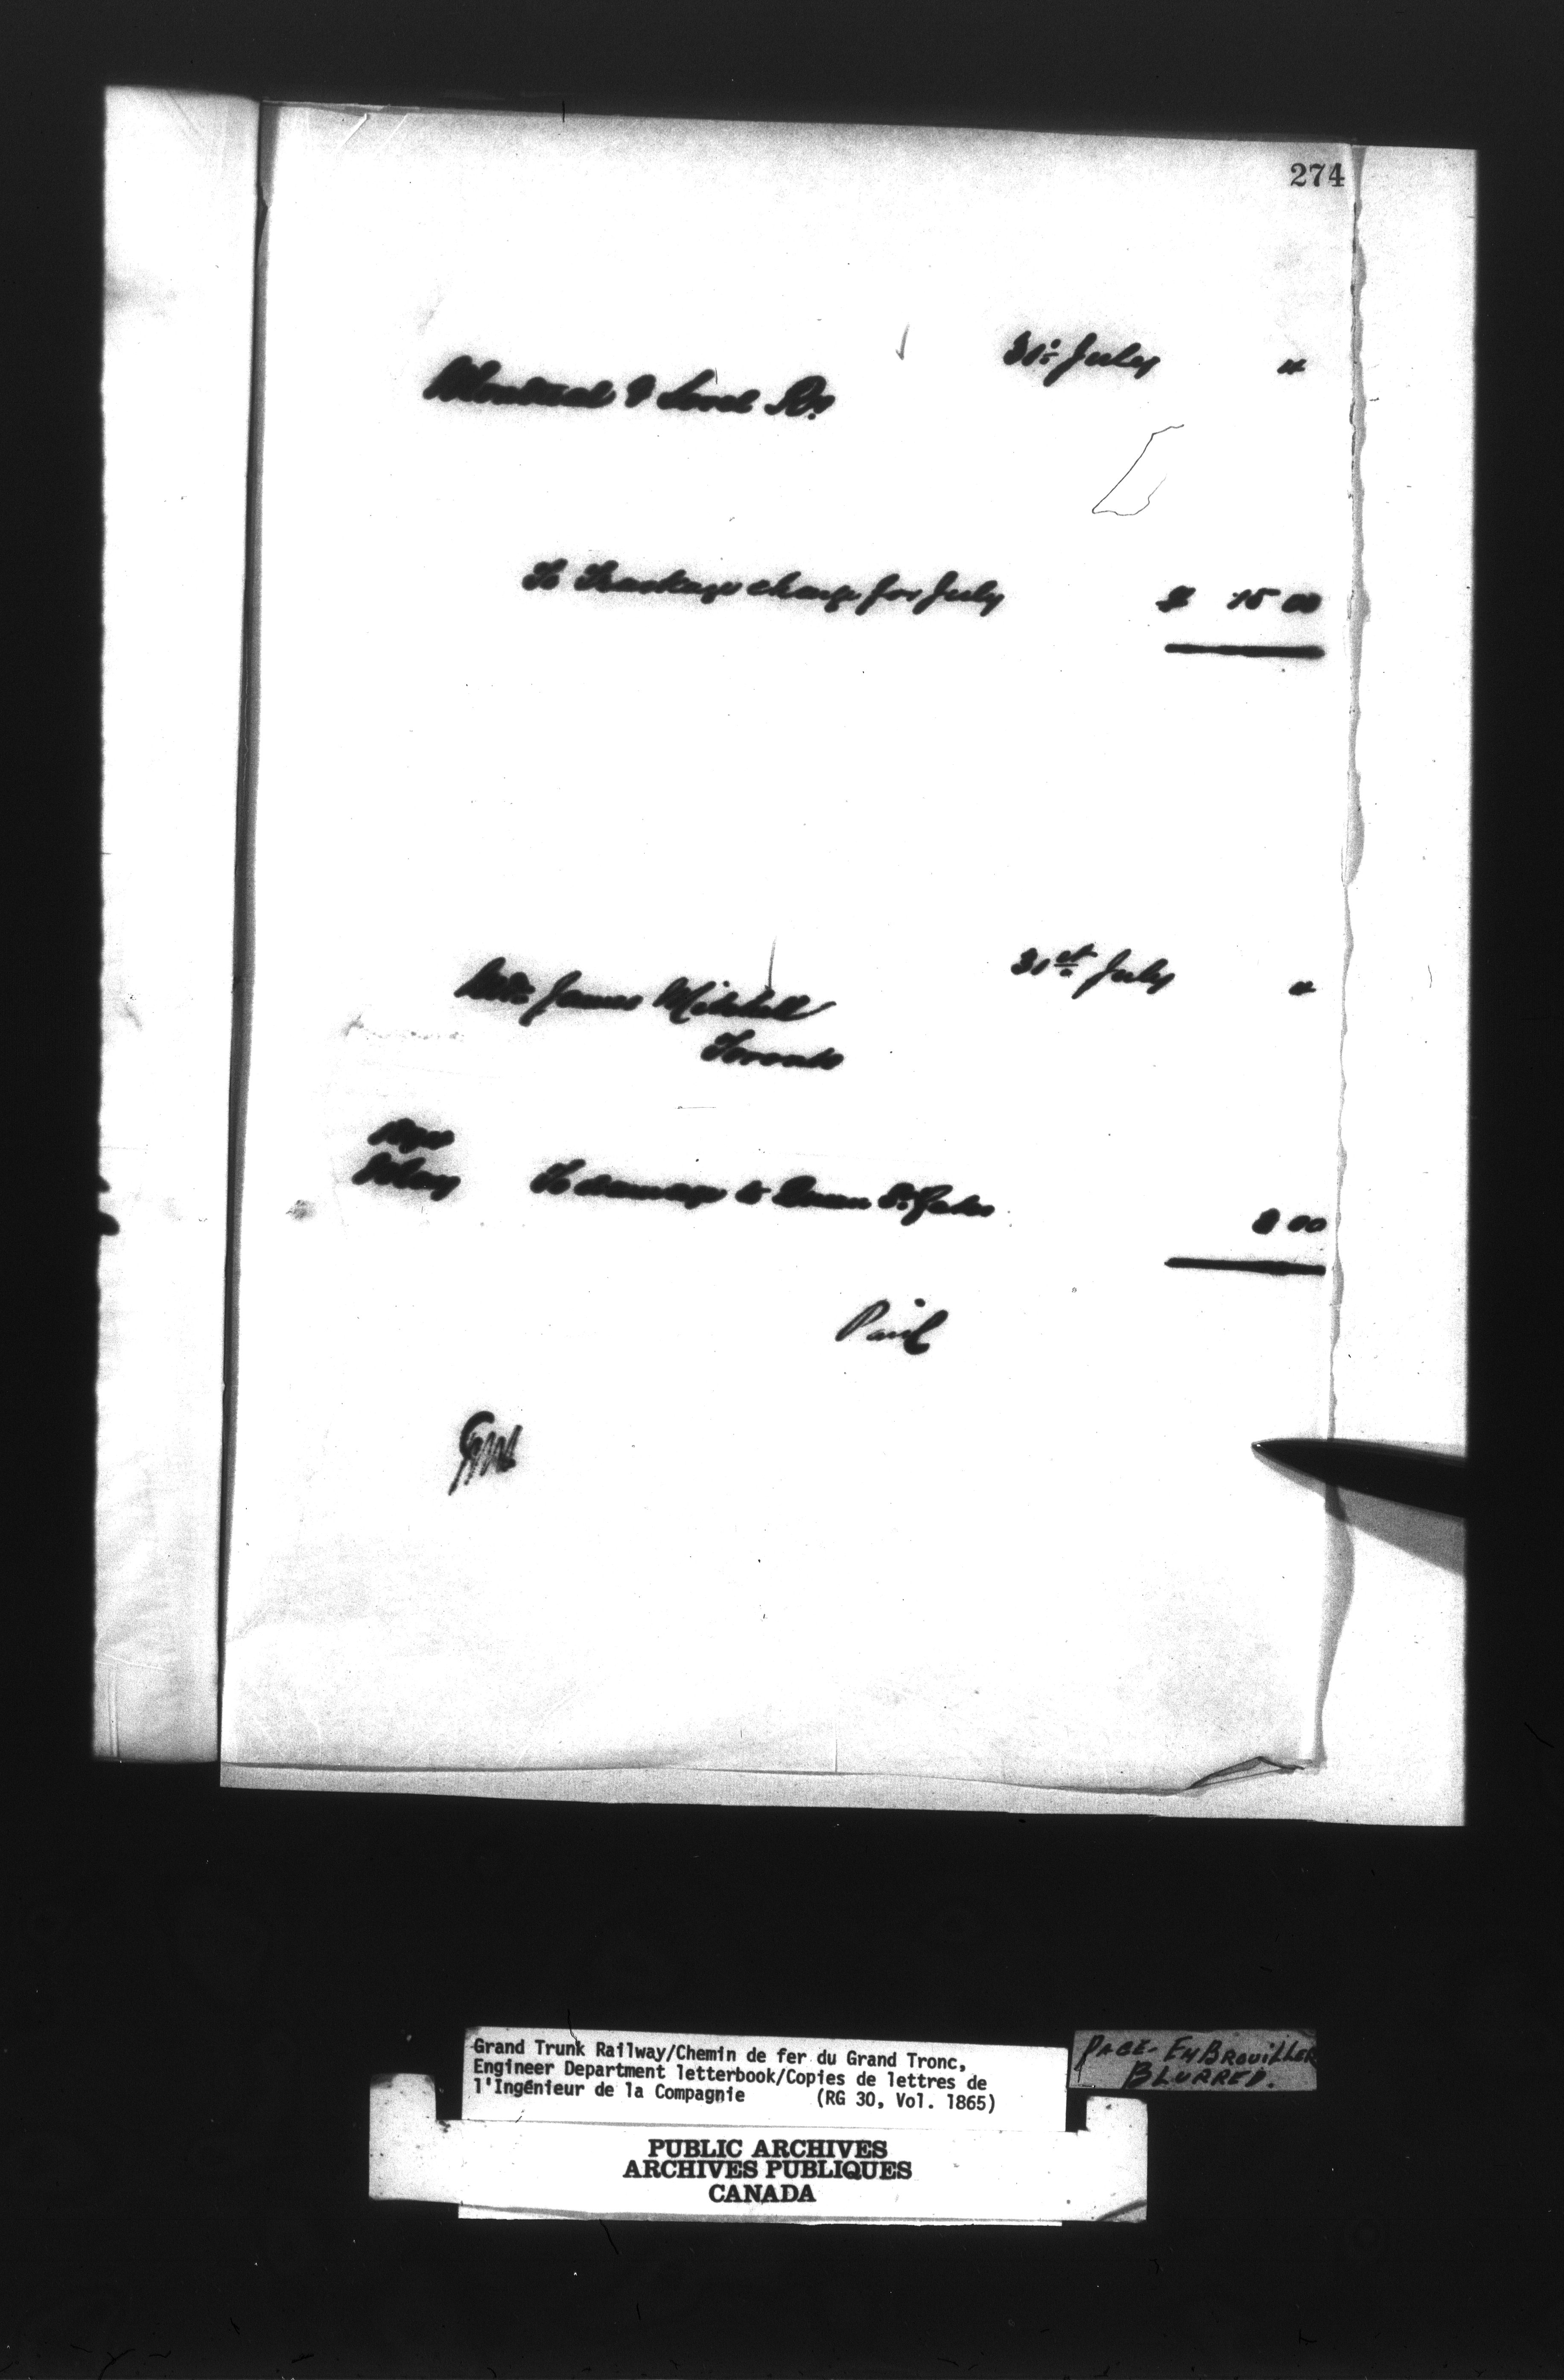 274
31st July "
Montreal & Sorel Ry
To Trackage charge for July $ 15 00
31st July "
Mr. James Mitchell
Toronto
May To damage to Queen St. Gates 8 00
Paid
Grand Trunk Railway/Chemin de fer du Grand Tronc,
Engineer Department letterbook/Copies de lettres de
l'Ingénieur de la Compagnie (RG 30, Vol. 1865)
PAGE - EMBROUILLER
BLURRED.
PUBLIC ARCHIVES
ARCHIVES PUBLIQUES
CANADA